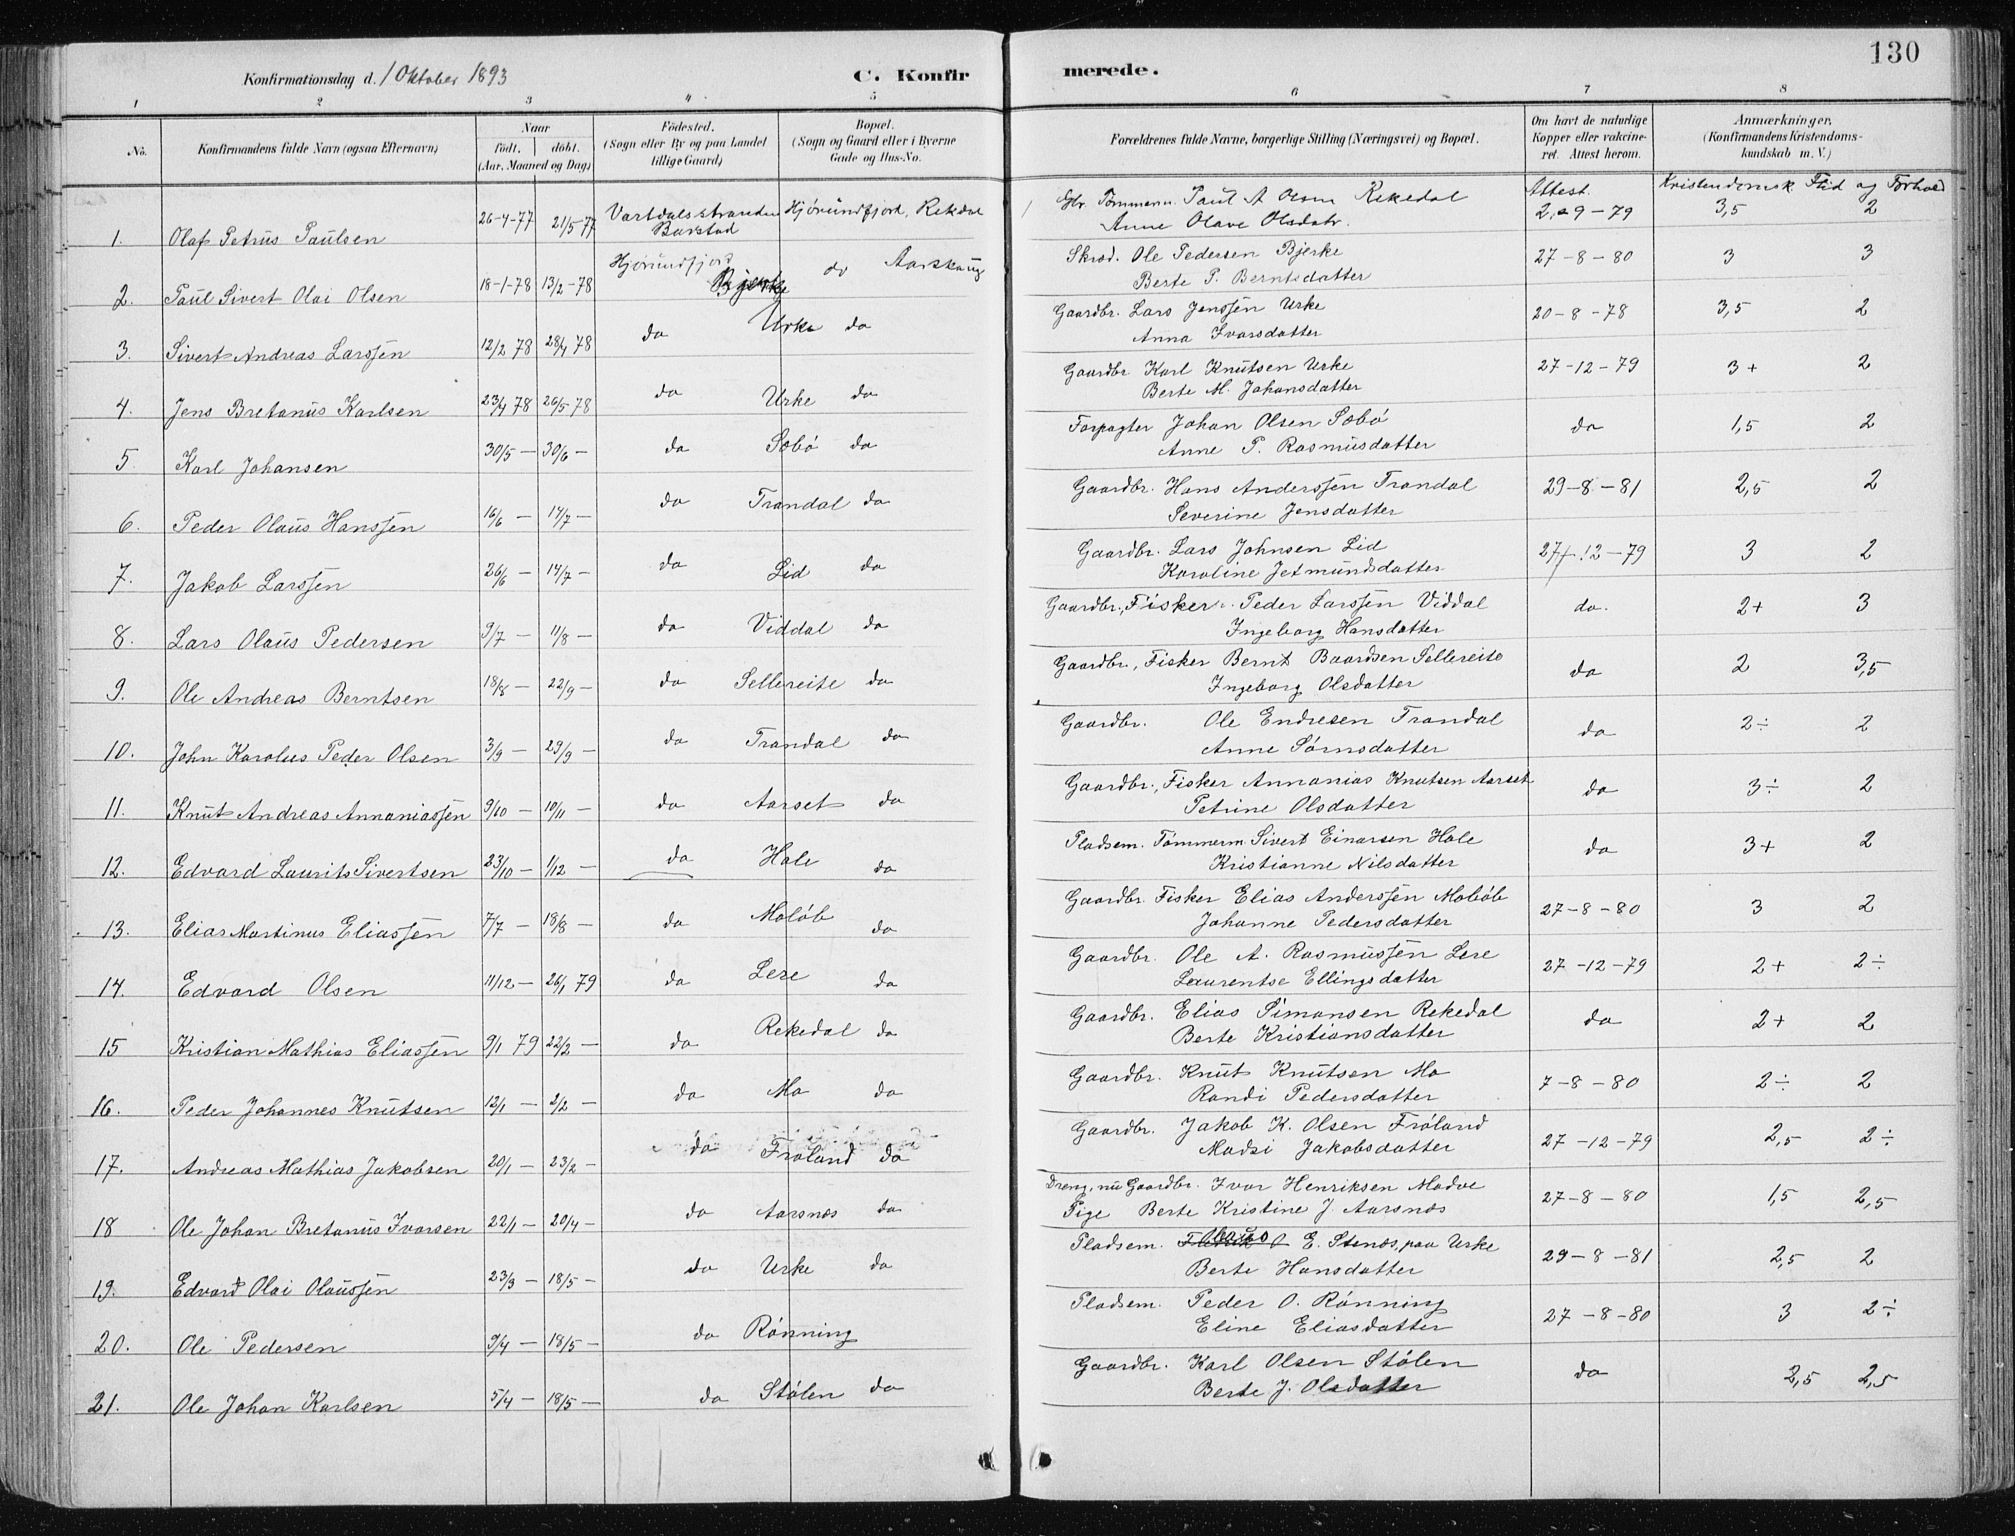 130
Konfirmationsdag d. 1 Oktober 1893
C. Konfirmerede.
1 2 3 4 5 6 7 8
No.
Konfirmandens fulde Navn (ogsaa Efternavn)
Naar
födt. döbt.
(Aar, Maaned og Dag)
Födested.
(Sogn eller By og paa Landet
tillige Gaard)
Bopæl.
(Sogn og Gaard eller i Byerne
Gade og Hus-No.
Forældrenes fulde Navne, borgerlige Stilling (Næringsvei) og Bopæl.
Om havt de naturlige
Kopper eller vakcineret. Attest herom.
Anmærkninger,
(Konfirmandens Kristendomskundskab m. V.)
Attest. Kristendomsk Flid og Forhold
1. Olaf Petrus Paulsen 26-4-77 21/5-77 Vartdalsstranden Barstad Hjørundfjord, Rekdal Tømmerm. Paul A Olsen Rekedal 2-9-79 3,5 2
Anne Olave Olsdatr.
2. Paul Sivert Olai Olsen 18-1-78 13/2-78 Hjørundfjord Bjerke do Aarskoug Skræd. Ole Pedersen Bjerke 27-8-80 3 3
Berte P. Berntsdatter
3. Sivert Andreas Larssen 12/2 78 28/4 78 do Urke do Gaardbr. Lars Jenssen Urke 20-8-78 3,5 2
Anna Ivarsdatter
4. Jens Bretanus Karlsen 23/4 78 26/5 78 do Urke do Gaardbr Karl Knutsen Urke 27-12-79 3+ 2
Berte M. Johansdatter
5. Karl Johansen 30/5 — 30/6 — do Sæbö do Forpagter Johan Olsen Sæbö do 1,5 2
Anne P. Rasmusdatter
6. Peder Olaus Hanssen 16/6 — 14/7 — do Trandal do Gaardbr. Hans Anderssen Trandal 29-8-81 2,5 2
Severine Jensdatter
7. Jakob Larssen 26/6 — 14/7 — do Lid do Gaardbr. Lars Johnsen Lid 27-12-79 3 2
Karoline Jetmundsdatter
8. Lars Olaus Pedersen 9/7 — 11/8 — do Viddal do Gaardbr., Fisker Peder Larssen Viddal do. 2+ 3
Ingeborg Hansdatter
9. Ole Andreas Berntsen 18/8 — 22/9 — do Sellereite do Gaardbr., Fisker Bernt Baardsen Sellereite do 2 3,5
Ingeborg Olsdatter
10. John Karolus Peder Olsen 3/9 — 29/9 — do Trandal do Gaardbr. Ole Endresen Trandal do 2÷ 2
Anne Sørnsdatter
11. Knut Andreas Annaniassen 9/10 — 10/11 — do Aarset do Gaardbr., Fisker Annanias Knutsen Aarset do 3÷ 2
Petrine Olsdatter
12. Edvard Laurits Sivertsen 23/10 — 1/12 — do Hole do Pladsem. Tømmerm. Sivert Einarsen Hole do 3+ 2
Kristianne Nilsdatter
13. Elias Martinus Eliassen 7/7 — 18/8 — do Moløb do Gaardbr. Fisker Elias Anderssen Moløb 27-8-80 3 2
Johanne Pedersdatter
14. Edvard Olsen 11/12 — 26/1 79 do Lere do Gaardbr. Ole A. Rasmussen Lere 27-12-79 2+ 2÷
Laurentse Ellingsdatter
15 Kristian Mathias Eliassen 9/1 79 22/2 — do Rekedal do Gaardbr. Elias Simonsen Rekedal do 2+ 2
Berte Kristiansdatter
16. Peder Johannes Knutsen 12/1 — 2/2 — do Mo do Gaardbr. Knut Knutsen Mo 7-8-80 2÷ 2
Randi Pedersdatter
17. Andreas Mathias Jakobsen 20/1 — 23/2 — do Frøland do Gaardbr. Jakob K. Olsen Frøland 27-12-79 2,5 2÷
Madsi Jakobsdatter
18 Ole Johan Bretanus Ivarsen 22/1 — 20/4 — do Aarsnes do Dreng, nu Gaardbr. Ivar Henriksen Madve 27-8-80 1,5 2,5
Pige Berte Kristine J. Aarsnes
19. Edvard Olai Olaussen 23/3 — 18/5 — do Urke do Pladsem. Olaus E. Stenes, paa Urke 29-8-81 2,5 2
Berte Hansdatter
20. Ole Pedersen 9/4 — 18/5 — do Rønning Pladsem. Peder O. Rønning 27-8-80 3 2÷
Eline Eliasdatter
21. Ole Johan Karlsen 5/4 — 18/5 — do Stølen do Gaardbr. Karl Olsen Stølen do 2,5 2,5
Berte J. Olsdatter